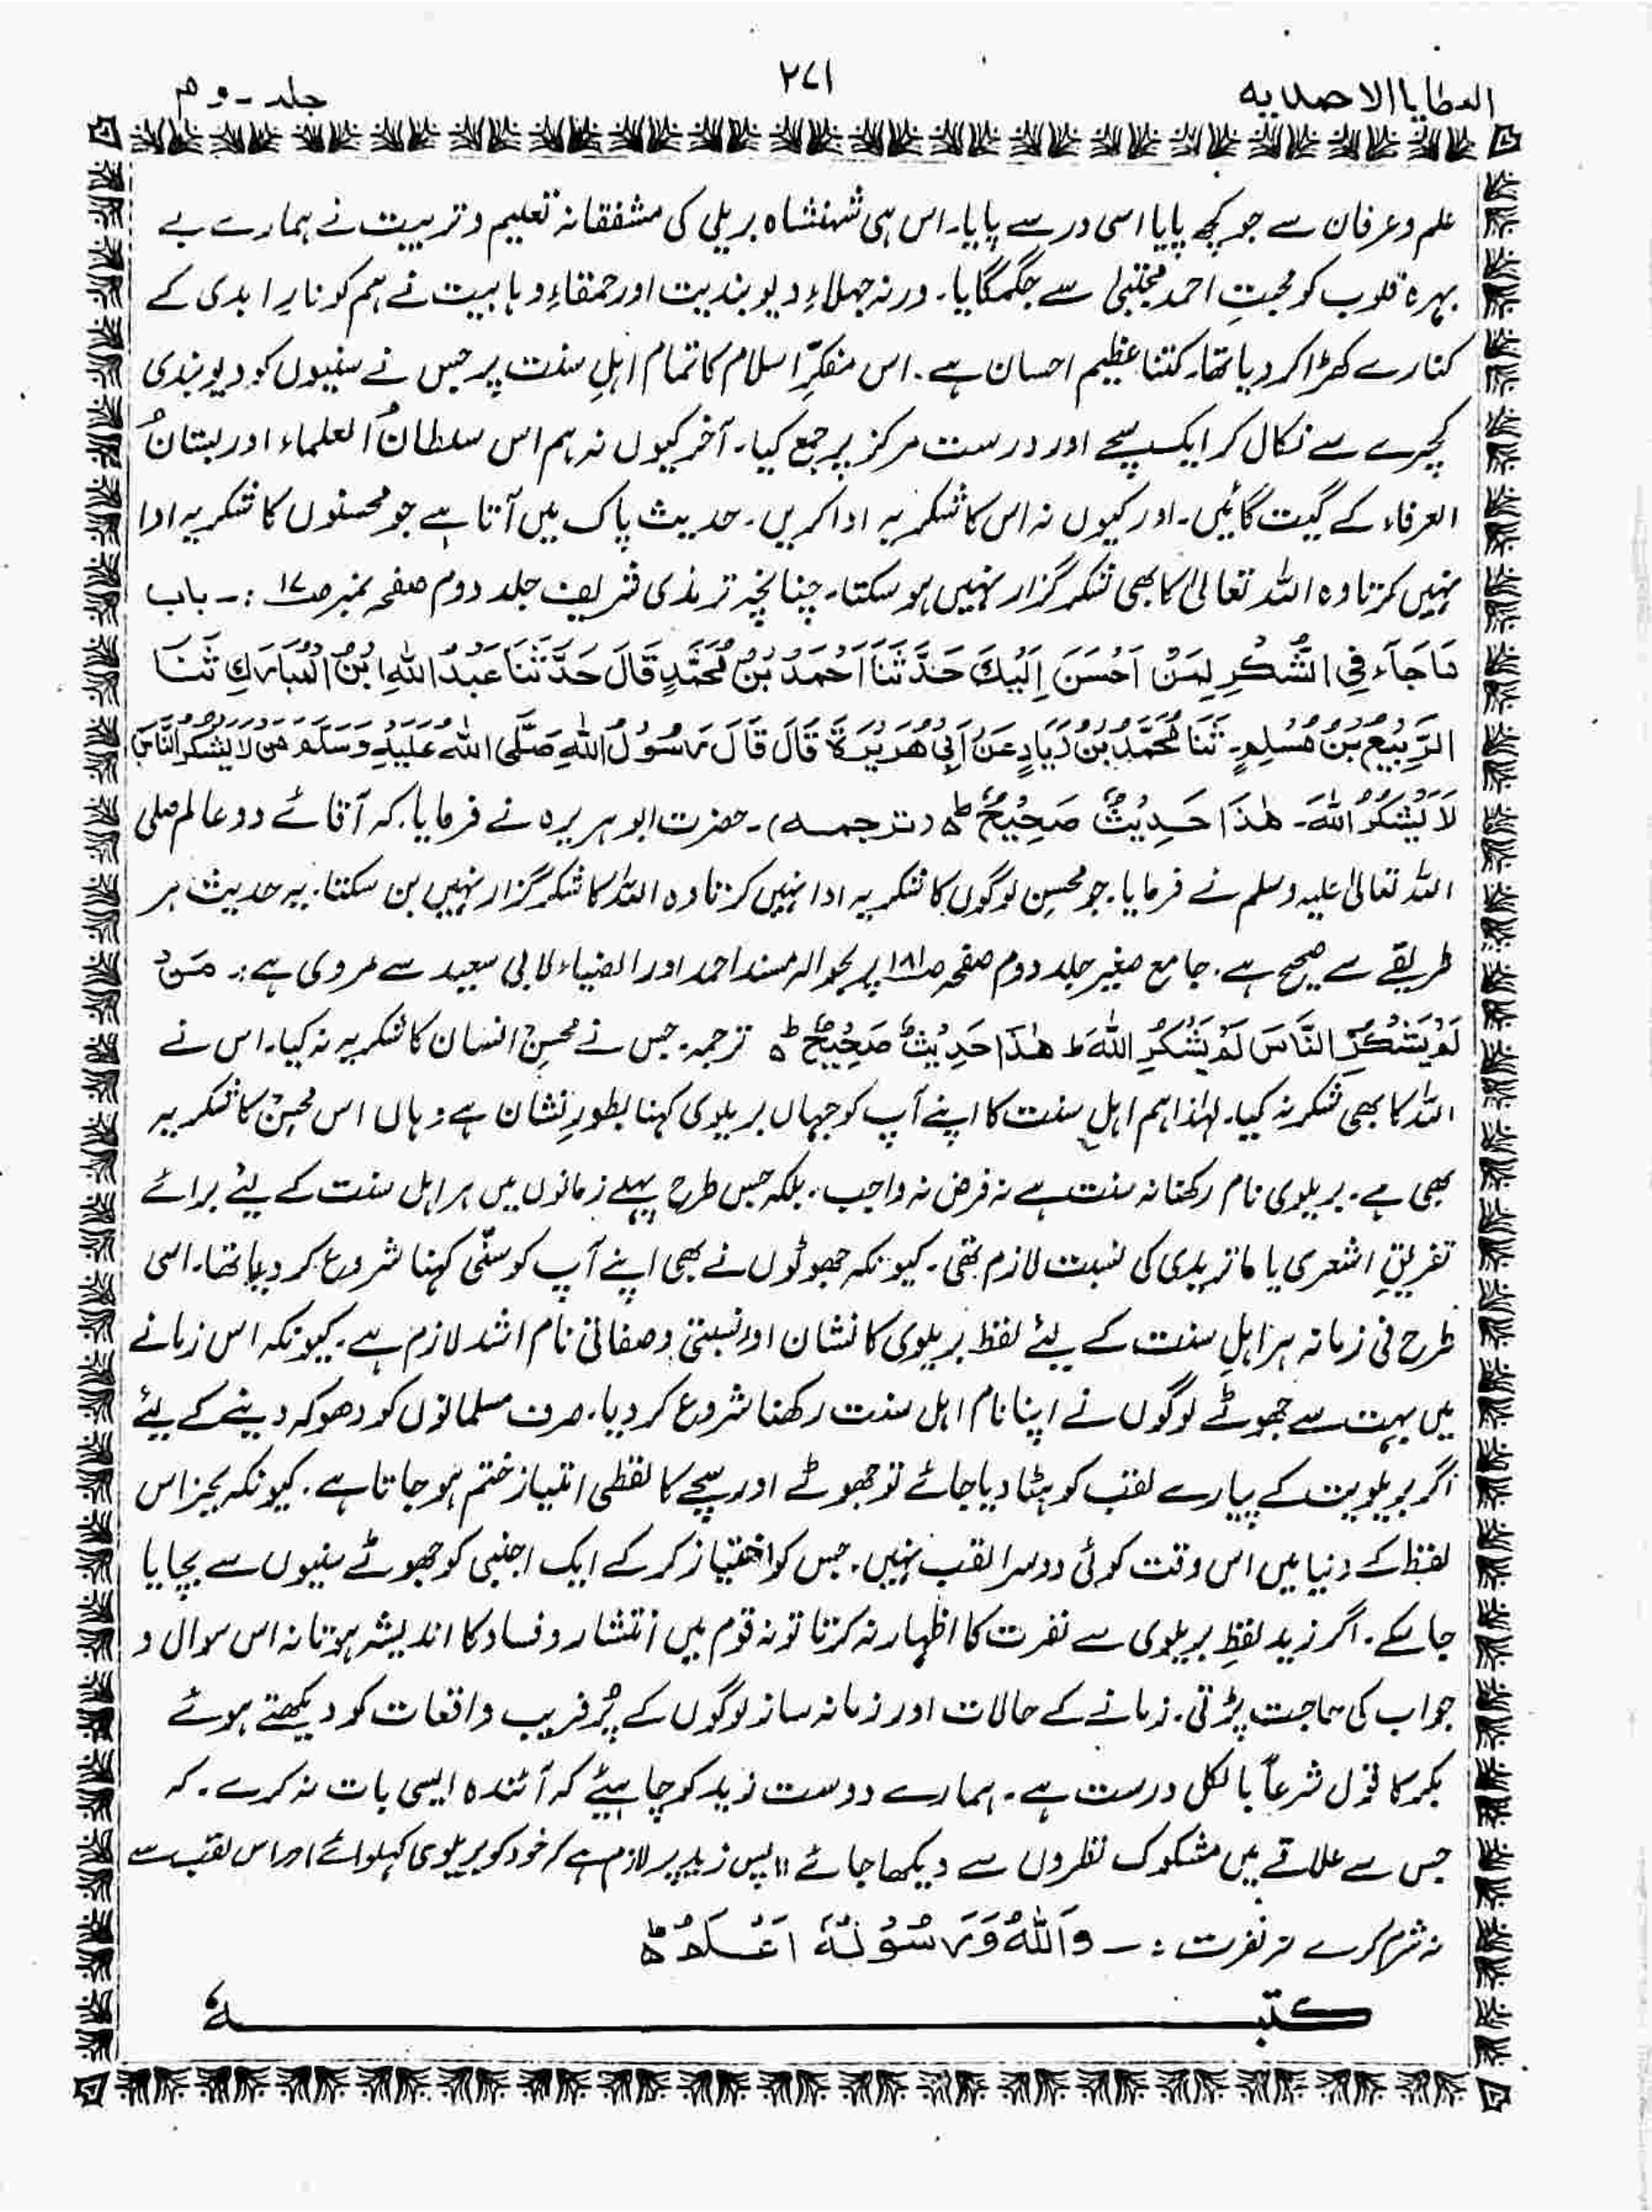 العطایا الاحمدیہ
۲۷۱
جلد دوم
علم و عرفان سے جو کچھ پایا اسی در سے پایا۔ اس ہی شہنشاہ بریلی کی مشفقانہ تعلیم و تربیت نے ہمارے بے
بہرہ قلوب کو محبتِ احمد مجتبیٰ سے جگمگایا۔ ورنہ جہلاءِ دیوبندیت اور حمقاءِ وہابیت نے ہم کو نارِ ابدی کے
کنارے کھڑا کر دیا تھا۔ کتنا عظیم احسان ہے۔ اس مفکرِّ اسلام کا تمام اہلِ سنت پر جس نے سنیوں کو دیوبندی
کچرے سے نکال کر ایک سچے اور درست مرکز پر جمع کیا۔ آخر کیوں نہ ہم اس سلطانُ العلماء اور بستانُ
العرفاء کے گیت گائیں۔ اور کیوں نہ اس کا شکریہ ادا کریں۔ حدیث پاک میں آتا ہے جو محسنوں کا شکریہ ادا
نہیں کرتا وہ اللہ تعالیٰ کا بھی شکر گزار نہیں ہو سکتا۔ چنانچہ ترمذی شریف جلد دوم صفحہ نمبر صـ۱۷ :۔ باب
مَا جَآءَ فِی الشُّکْرِ لِمَنْ اَحْسَنَ اِلَیْكَ حَدَّثَنَا اَحْمَدُ بْنُ مُحَمَّدٍ قَالَ حَدَّثَنَا عَبْدُ اللهِ ابْنُ الْمُبَارَكِ ثَنَا
الرَّبِیْعُ بْنُ مُسْلِمٍ۔ ثَنَا مُحَمَّدُ بْنُ زِیَادٍ عَنْ اَبِیْ هُرَیْرَةَ قَالَ قَالَ رَسُوْلُ اللهِ صَلَّی اللهُ عَلَیْهِ وَسَلَّمَ مَنْ لَا یَشْکُرُ النَّاسَ
لَا یَشْکُرُ اللهَ۔ هٰذَا حَدِیْثٌ صَحِیْحٌ ط (ترجمہ)۔ حضرت ابو ہریرہ نے فرمایا۔ کہ آقائے دو عالم صلی
اللہ تعالیٰ علیہ وسلم نے فرمایا۔ جو محسن لوگوں کا شکریہ ادا نہیں کرتا وہ اللہ کا شکر گزار نہیں بن سکتا۔ یہ حدیث ہر
طریقے سے صحیح ہے۔ جامع صغیر جلد دوم صفحہ صـ۱۸۱ پر بحوالہ مسند احمد اور الضیاء لابی سعید سے مروی ہے :۔ مَنْ
لَمْ یَشْکُرِ النَّاسَ لَمْ یَشْکُرِ اللهَ ط هٰذَا حَدِیْثٌ صَحِیْحٌ ط ترجمہ۔ جس نے محسنِ انسان کا شکریہ نہ کیا۔ اس نے
اللہ کا بھی شکر نہ کیا۔ لہٰذا ہم اہلِ سنت کا اپنے آپ کو جہاں بریلوی کہنا بطورِ نشان ہے وہاں اس محسن کا شکریہ
بھی ہے۔ بریلوی نام رکھنا نہ سنت ہے نہ فرض نہ واجب۔ بلکہ جس طرح پہلے زمانوں میں ہر اہل سنت کے لیئے برائے
تفریقِ اشعری یا ماتریدی کی نسبت لازم تھی۔ کیونکہ جھوٹوں نے بھی اپنے آپ کو سنّی کہنا شروع کر دیا تھا۔ اسی
طرح فی زمانہ ہر اہلِ سنت کے لیئے لفظ بریلوی کا نشان اور نسبتی و صفاتی نام اشد لازم ہے۔ کیونکہ اس زمانے
میں بہت سے جھوٹے لوگوں نے اپنا نام اہل سنت رکھنا شروع کر دیا۔ صرف مسلمانوں کو دھوکہ دینے کے لیئے
اگر بریلویت کے پیارے لقب کو ہٹا دیا جائے تو جھوٹے اور سچے کا لفظی امتیاز ختم ہو جاتا ہے۔ کیونکہ بجز اس
لفظ کے دنیا میں اس وقت کوئی دوسرا لقب نہیں۔ جس کو اختیار کر کے ایک اجنبی کو جھوٹے سنیوں سے بچایا
جا سکے۔ اگر زید لفظِ بریلوی سے نفرت کا اظہار نہ کرتا تو نہ قوم میں انتشار و فساد کا اندیشہ ہوتا نہ اس سوال و
جواب کی حاجت پڑتی۔ زمانے کے حالات اور زمانہ ساز لوگوں کے پُر فریب واقعات کو دیکھتے ہوئے
بکر کا قول شرعاً بالکل درست ہے۔ ہمارے دوست زید کو چاہیئے کہ آئندہ ایسی بات نہ کرے۔ کہ
جس سے علاقے میں مشکوک نظروں سے دیکھا جائے ॥ پس زید پر لازم ہے کہ خود کو بریلوی کہلوائے اور اس لقب سے
نہ شرم کرے نہ نفرت :۔ وَاللهُ وَرَسُوْلُهٗ اَعْلَمُ ط
کتبـــــــــہٗ